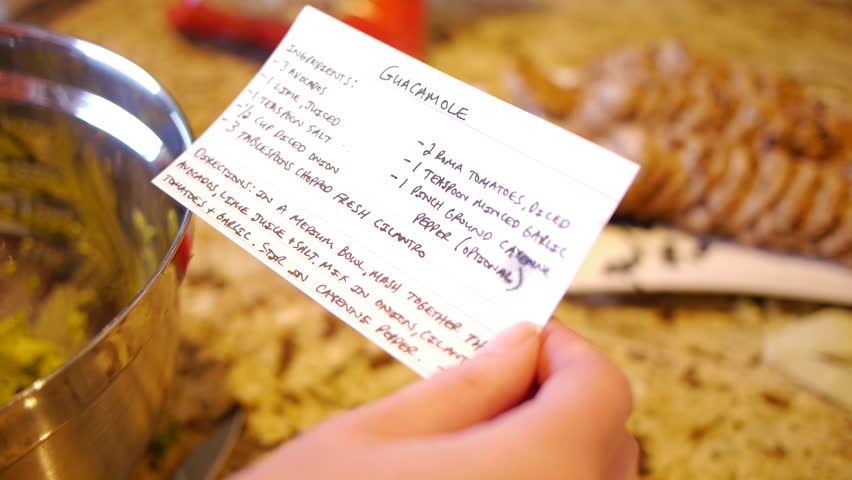 GUACAMOLE
INGREDIENTS:
- 3 AVOCADOS
- 1 LIME, JUICED
- 1 TEASPOON SALT
- 1/2 CUP DICED ONION
- 3 TABLESPOONS CHOPPED FRESH CILANTRO
- 2 ROMA TOMATOES, DICED
- 1 TEASPOON MINCED GARLIC
- 1 PINCH GROUND CAYENNE
PEPPER (OPTIONAL)
DIRECTIONS: IN A MEDIUM BOWL, MASH TOGETHER TH
AVOCADOS, LIME JUICE + SALT. MIX IN ONION, CILANT
TOMATOES + GARLIC. STIR IN CAYENNE PEPPER.